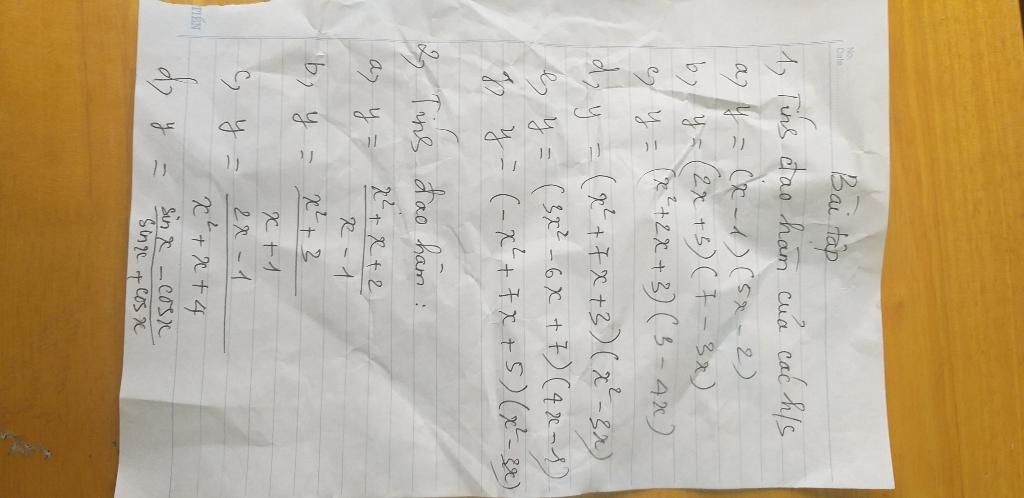 No.
Date
Bài tập
1, Tính đạo hàm của các h/s
a, y = (x - 1)(5x - 2)
b, y = (2x + 5)(7 - 3x)
c, y = (x² + 2x + 3)(3 - 4x)
d, y = (x² + 7x + 3)(x² - 3x)
e, y = (3x² - 6x + 7)(4x - 1)
g, y = (-x² + 7x + 5)(x² - 3x)
2, Tính đạo hàm:
a, y = x² + x + 2
x - 1
b, y = x² + 3
x + 1
c, y = 2x - 1
x² + x + 4
d, y = sin x - cos x
sin x + cos x
TIẾN